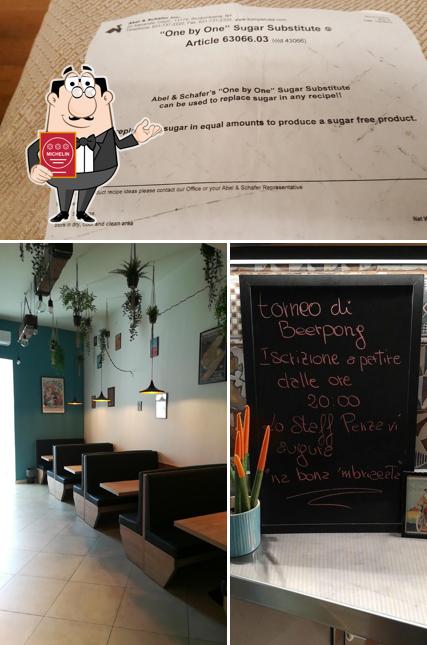 Abel & Schafer Inc.
"One by One" Sugar Substitute ®
Article 63066.03 (old 43066)
Abel & Schafer's "One by One" Sugar Substitute
can be used to replace sugar in any recipe!!
sugar in equal amounts to produce a sugar free product.
MICHELIN
recipe ideas please contact our Office or your Abel & Schafer Representative
store in dry, cool and clean area
torneo di
Beerpong
Iscrizione a partire
dalle ore
20:00
lo Staff Penze vi
augura
'na bona 'mbriacata